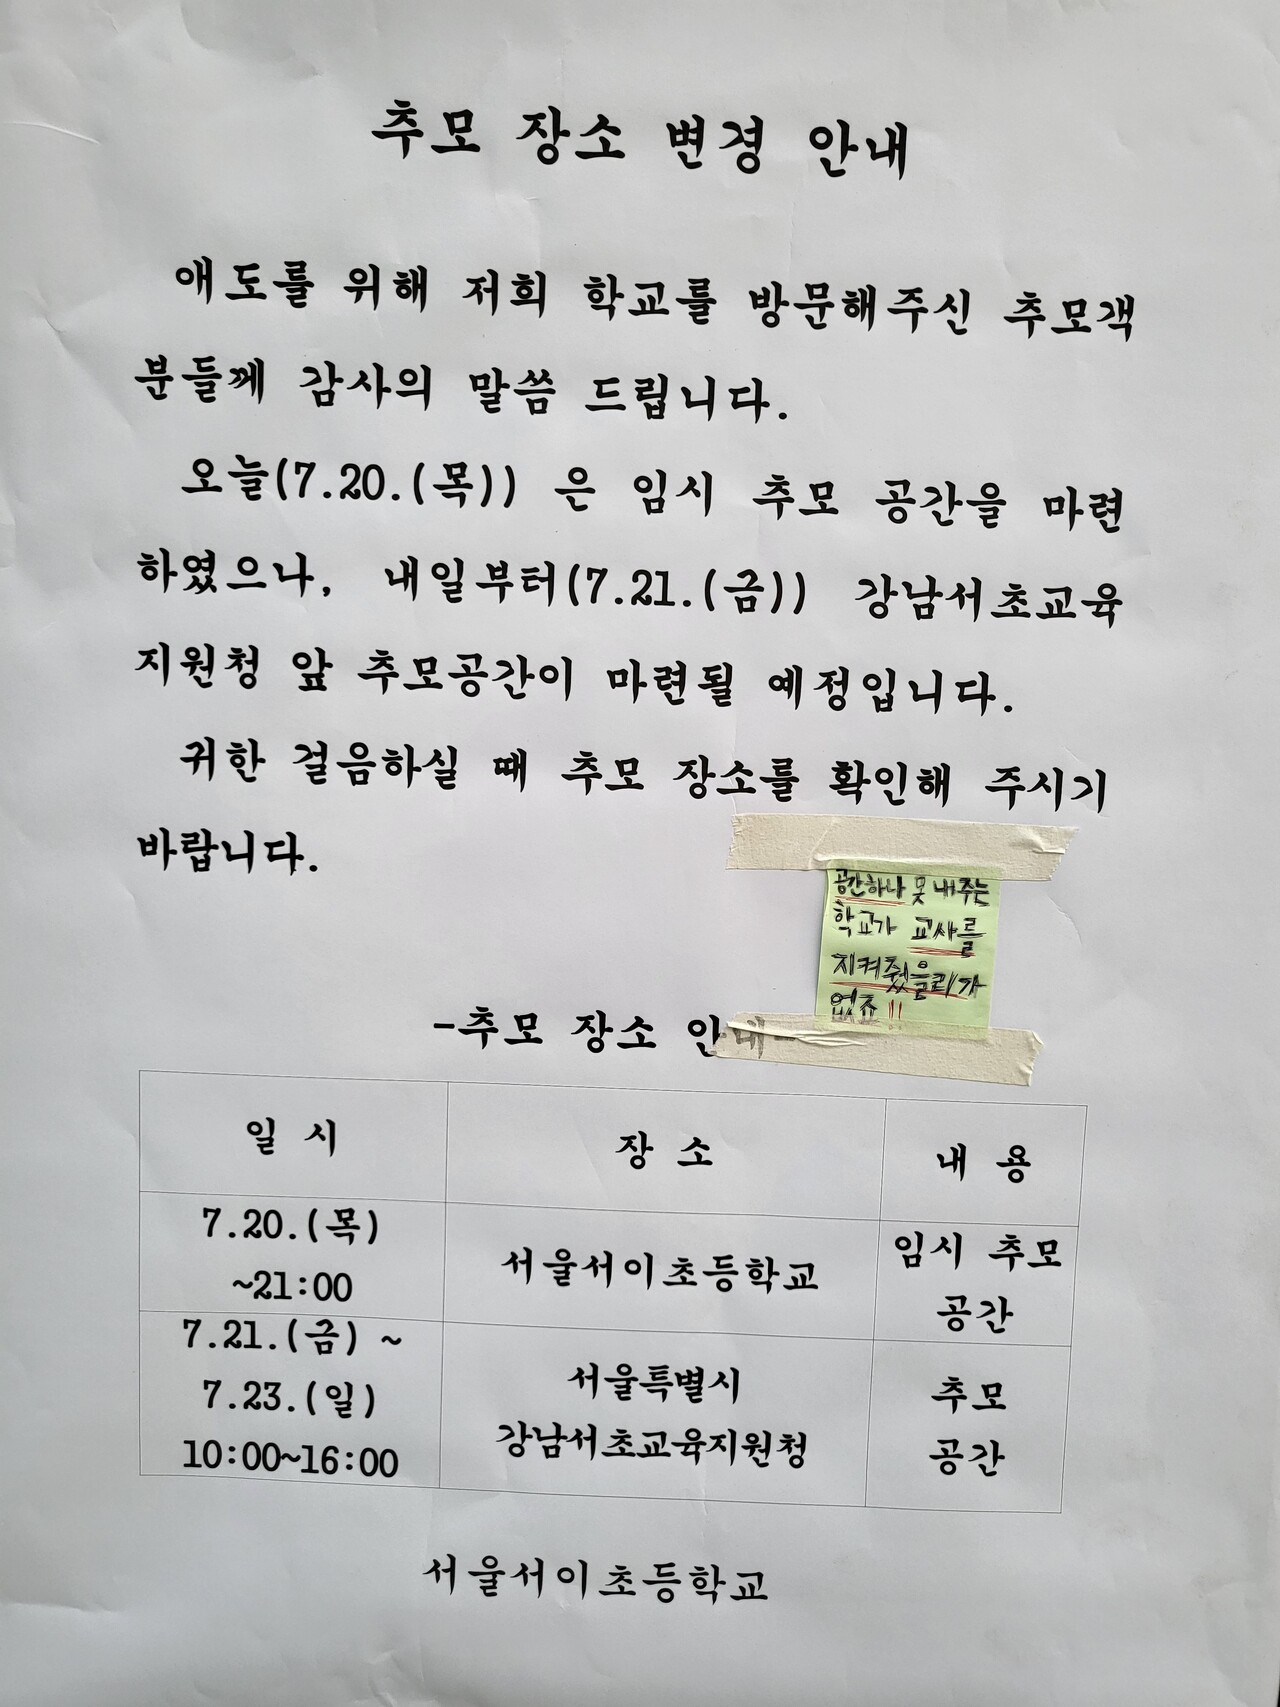 추모 장소 변경 안내
애도를 위해 저희 학교를 방문해주신 추모객
분들께 감사의 말씀 드립니다.
오늘(7.20.(목)) 은 임시 추모 공간을 마련
하였으나, 내일부터(7.21.(금)) 강남서초교육
지원청 앞 추모공간이 마련될 예정입니다.
귀한 걸음하실 때 추모 장소를 확인해 주시기
바랍니다.
공간하나 못 내주는
학교가 교사를
지켜줬을리가
없죠!!
-추모 장소 안내-
일 시 장 소 내 용
7.20.(목)
~21:00
서울서이초등학교
임시 추모
공간
7.21.(금) ~
7.23.(일)
10:00~16:00
서울특별시
강남서초교육지원청
추모
공간
서울서이초등학교